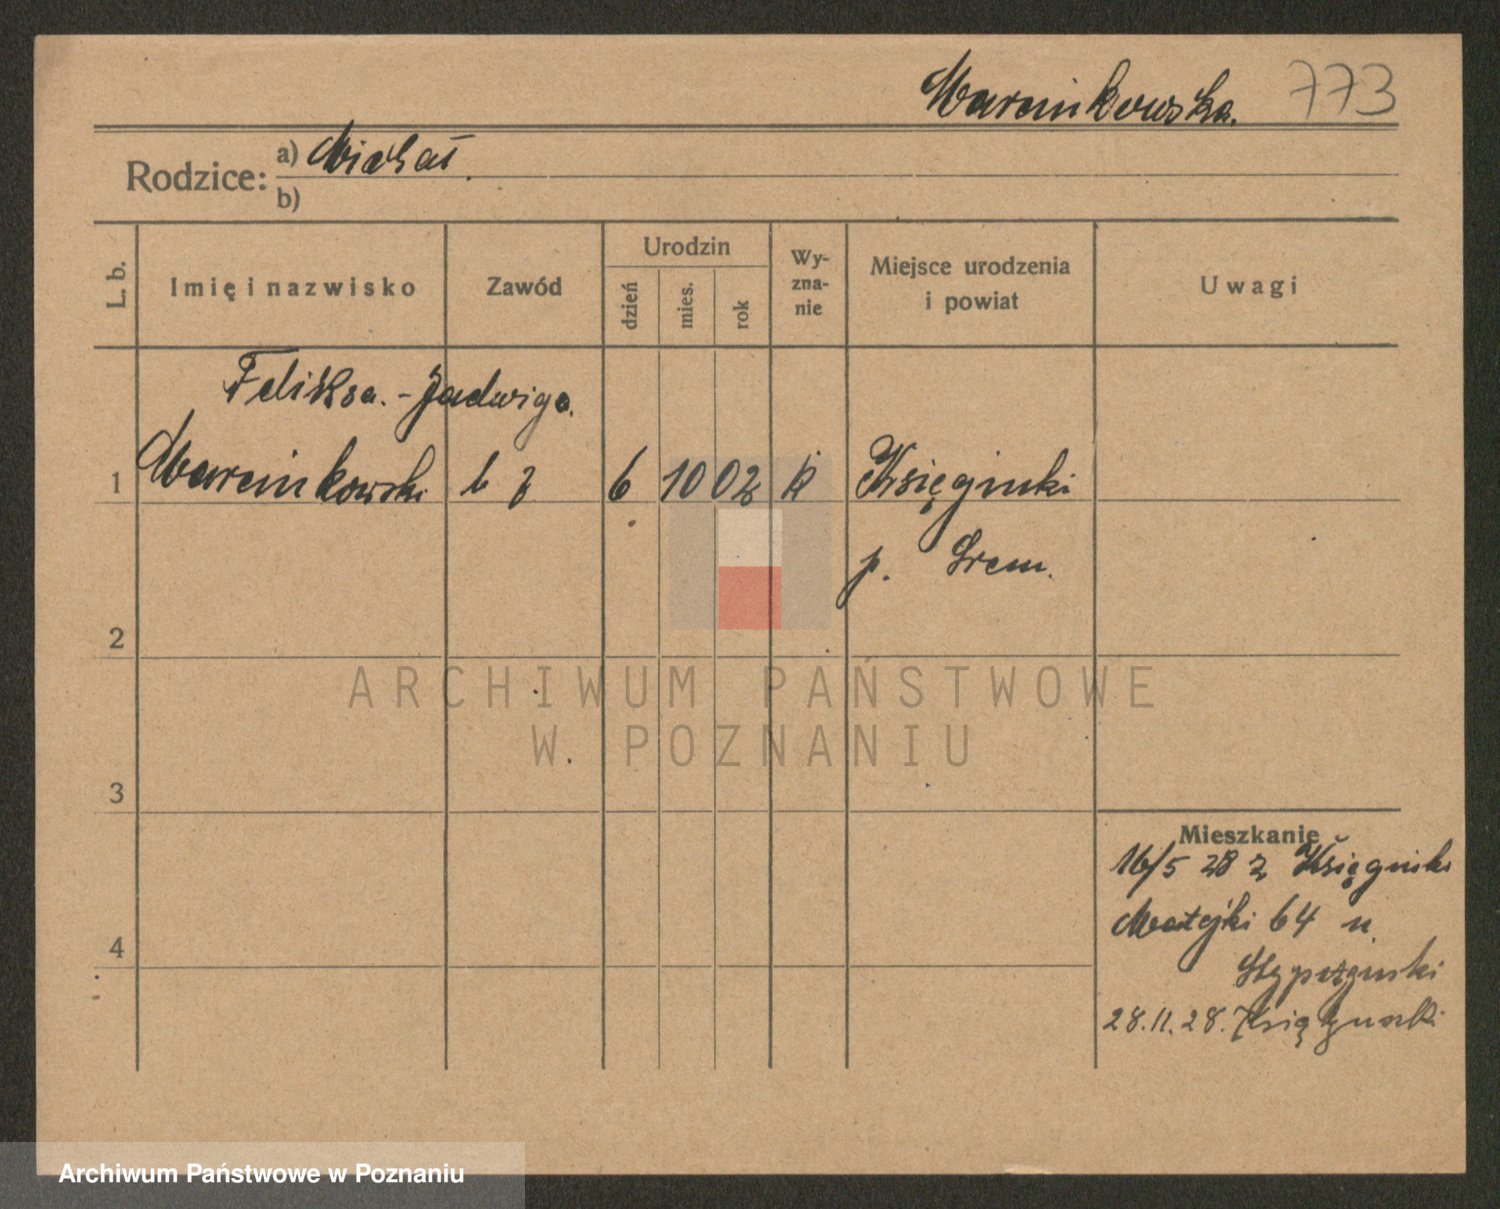 Marcinkowska. 773
Rodzice: a) Michał.
b)
L. b. Imię i nazwisko Zawód Urodzin dzień mies. rok Wy-zna-nie Miejsce urodzenia i powiat Uwagi
Feliksa.-Jadwiga.
1 Marcinkowski b z 6 10 02 k Księginki
p. Śrem.
2
ARCHIWUM PAŃSTWOWE
W POZNANIU
3
Mieszkanie
16/5 28 z Księginki
4 Matejki 64 u
28.11.28.
Archiwum Państwowe w Poznaniu